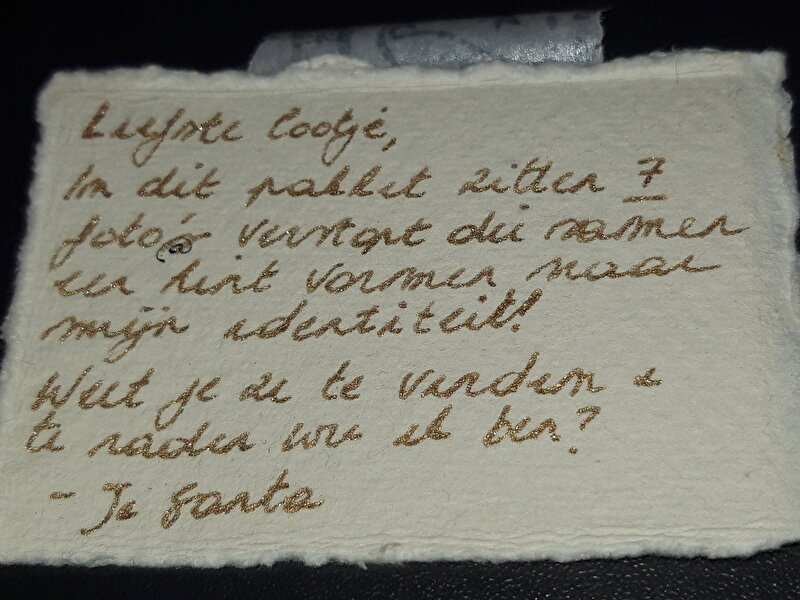 Liefste lootje,
In dit pakket zitten 7
foto's verstopt die samen
een hint vormen naar
mijn identiteit!
Weet je ze te vinden &
te raden wie ik ben?
- Je Santa